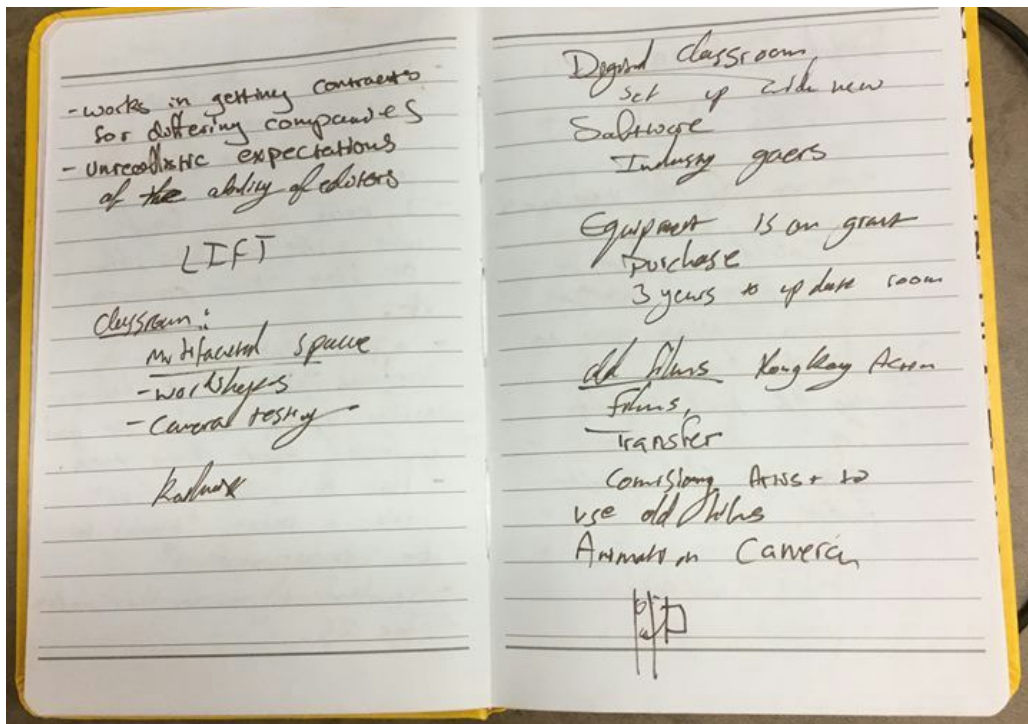 - works in getting contracts
for differing companies
- unrealistic expectations
of the ability of editors
LIFT
Classroom:
Multifaceted space
- workshops
- Camera testing
Digital classroom
set up with new
Software
Industry gaers
Equipment is on grant
purchase
3 years to update room
old films Hong Kong Action
films,
Transfer
Comisiong Artist to
use old films
Animation Camera